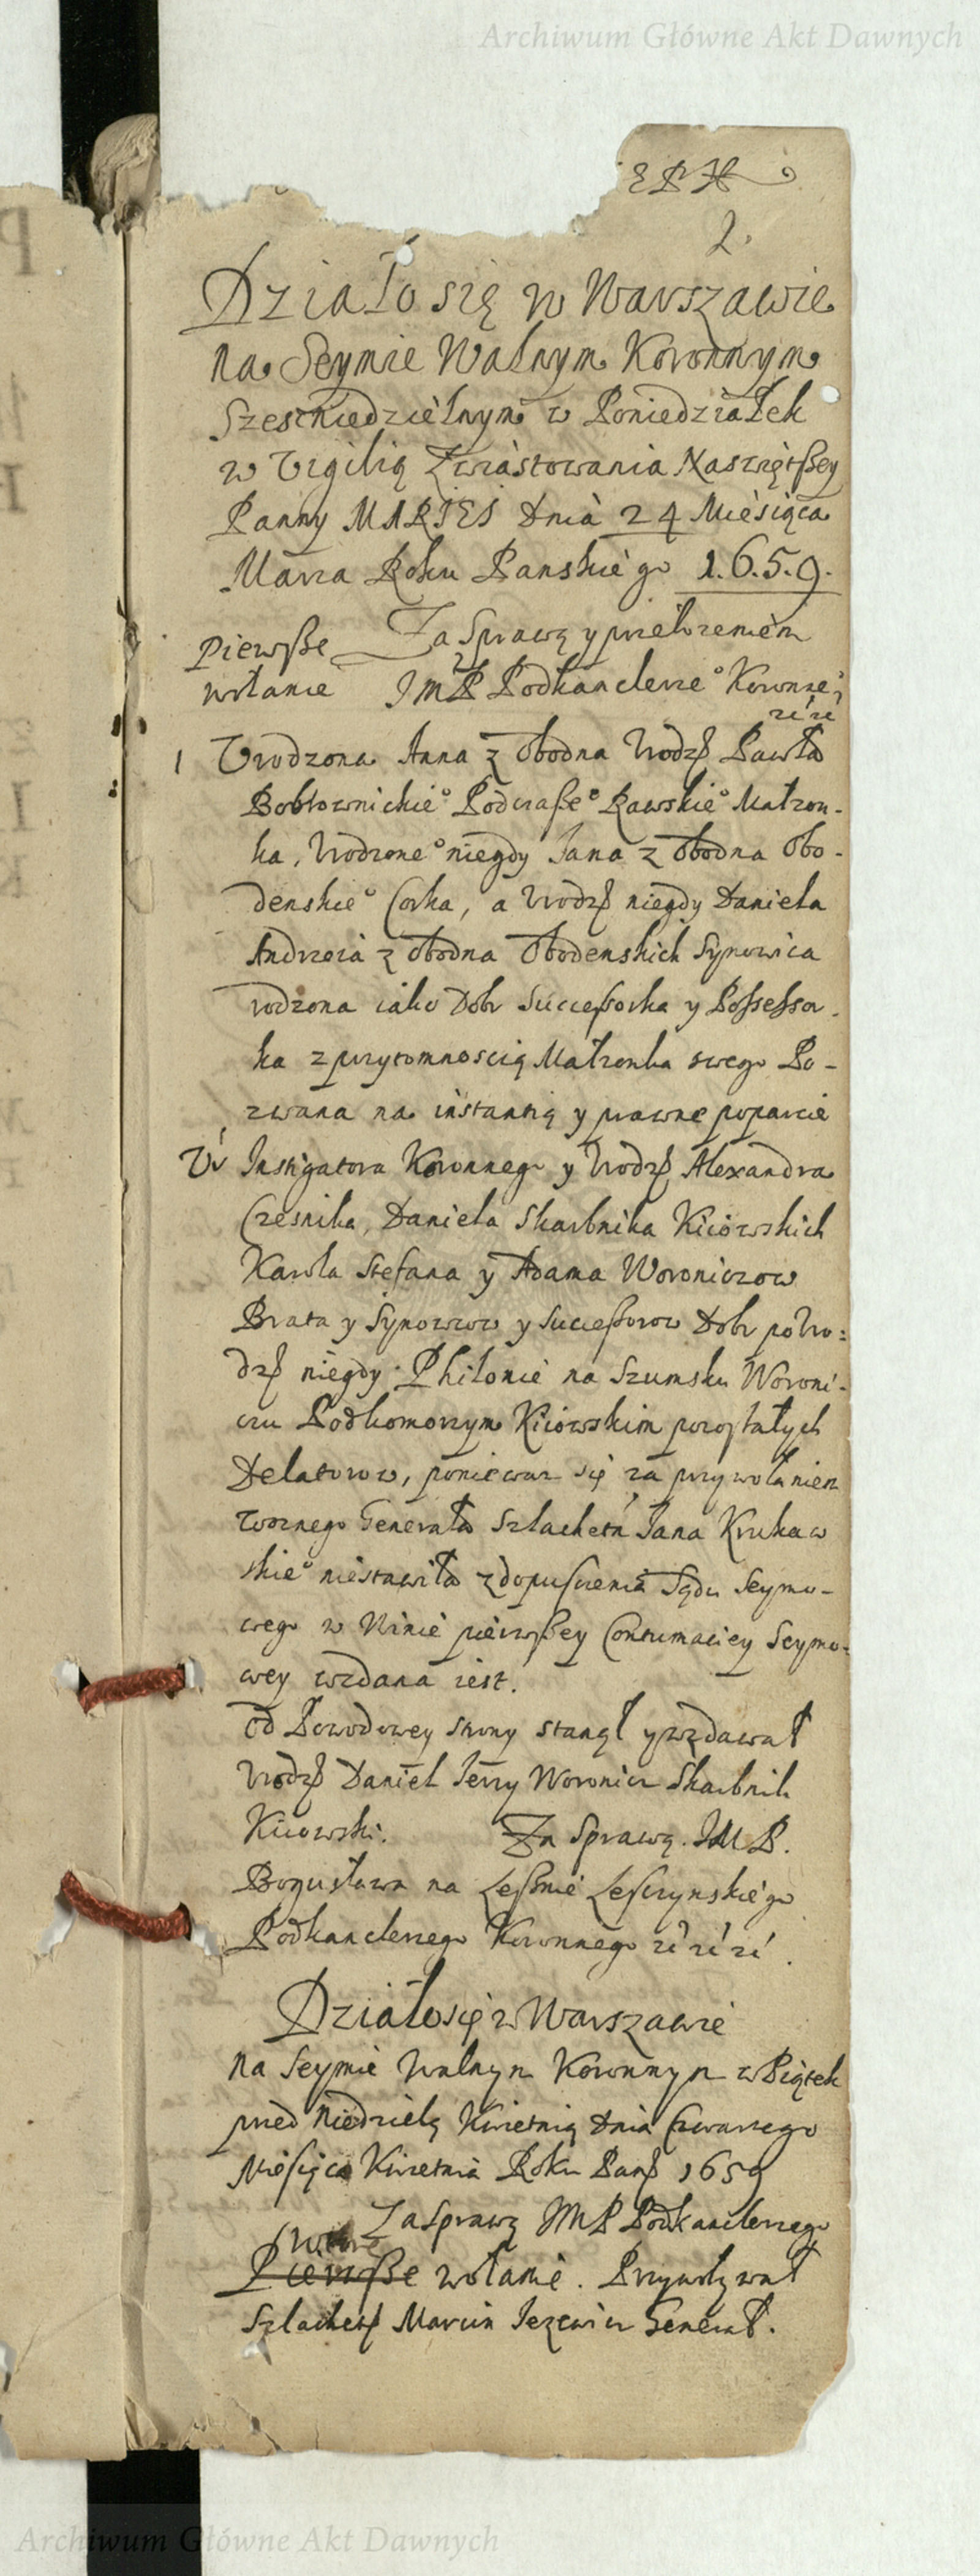 Archiwum Główne Akt Dawnych
2.
Działo się w Warszawie
na Seymie Walnym Koronnym
Szescniedzielnym w Poniedziałek
w Vigilią Zwiastowania Naswiętßey
Panny MARIEI Dnia 24 Miesiąca
Marca Roku Panskiego 1.6.5.9.
Pierwsze Za Sprawą y przełozeniem
wołanie JmP Podkanclerze° Koronne°
1 Urodzona Anna z Obodna Urodz Pawła
Bobrownickie° Podczaße° Rawskie° Małzon-
ka, Urodzone° niegdy Jana z Obodna Obo-
denskie° Corka, a Urodz niegdy Daniela
Andrzeia z Obodna Obodenskich Synowica
rodzona iako Dobr Successorka y Possessor-
ka z przytomnoscią Małzonka swego Po-
zwana na instantią y prawne poparcie
Ur Instigatora Koronnego y Urodz Alexandra
Czesnika, Daniela Skarbnika Kiiowskich
Karola Stefana y Adama Woroniczow
Brata y Synowcow y Successorow Dobr po Uro:
dz niegdy Philonie na Szumsku Woroni-
czu Podkomorzym Kiiowskim pozostałych
Delatorow, poniewaz się za przywołaniem
woznego Generała Szlachetn Jana Krukaw
skie° niestawiła z dopusczenia Sądu Seymo-
wego w Winie pierwßey Contumaciey Seymo-
wey wzdana iest.
od Powodowey strony stanął y wzdawał
Urodz Daniel Jerzy Woronicz Skarbnik
Kiiowski. Za Sprawą JMP.
Bogusława na Lesznie Lesczynskiego
Podkanclerzego Koronnego
Działo się w Warszawie
na Seymie Walnym Koronnym w Piątek
przed Niedzielą Kwietnią Dnia Czwartego
Miesiąca Kwietnia Roku Pan 1659
Za Sprawą JMP Podkanclerzego
Pierwsze wołanie. Przywoływał
Szlachet Marcin Jezewicz Generał.
Archiwum Główne Akt Dawnych